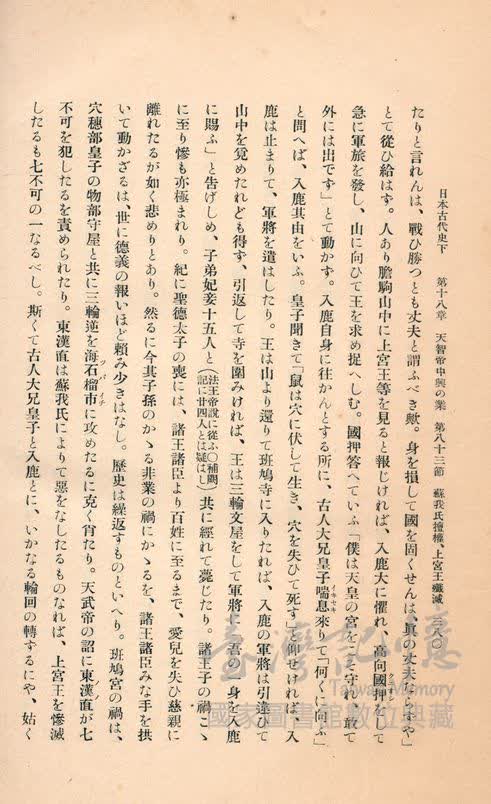 日本古代史下　第十八章　天智帝中興の業　第八十三節　蘇我氏擅權、上宮王殲滅　三八〇
たりと言れんは、戰ひ勝つとも丈夫と謂ふべき歟。身を損して國を固くせんは、眞の丈夫ならずや」
とて從ひ給はす。人あり膽駒山中に上宮王等を見ると報じければ、入鹿大に懼れ、高向國押をして
急に軍旅を發し、山に向ひて王を求め捉へしむ。國押答へていふ「僕は天皇の宮をこそ守れ、敢て
外には出です」とて動かす。入鹿自身に往かんとする所に、古人大兄皇子喘息來りて「何くに向ふ」
と問へば、入鹿其由をいふ。皇子聞きて「鼠は穴に伏して生き、穴を失ひて死す」て仰せければ、入
鹿は止まりて、軍將を遣はしたり。王は山より還りて班鳩寺に入りたれば、入鹿の軍將は引違ひて
山中を覓めたれども得ず、引返して寺を圍みければ、王は三輪文屋をして軍將に「吾の一身を入鹿
に賜ふ」と告げしめ、子弟妃妾十五人と（法王帝說に從ふ〇補闕記に廿四人とは疑はし）共に經れて薨じたり。諸王子の禍こゝ
に至り慘も亦極まれり。紀に聖德太子の喪には、諸王諸臣より百姓に至るまで、愛兒を失ひ慈親に
離れたるが如く悲めりとあり。然るに今其子孫のかゝる非業の禍にかゝるを、諸王諸臣みな手を拱
いて動かざるは、世に德義の報いほど賴み少きはなし。歷史は繰返すものといへり。班鳩宮の禍は、
穴穗部皇子の物部守屋と共に三輪逆を海石榴市に攻めたるに克く肖たり。天武帝の詔に東漢直が七
不可を犯したるを責められたり。東漢直は蘇我氏によりて惡をなしたるものなれば、上宮王を慘滅
したるも七不可の一なるべし。斯くて古人大兄皇子と入鹿とに、いかなる輪回の轉するにや、姑く
臺灣記憶
Taiwan Memory
國家圖書館數位典藏